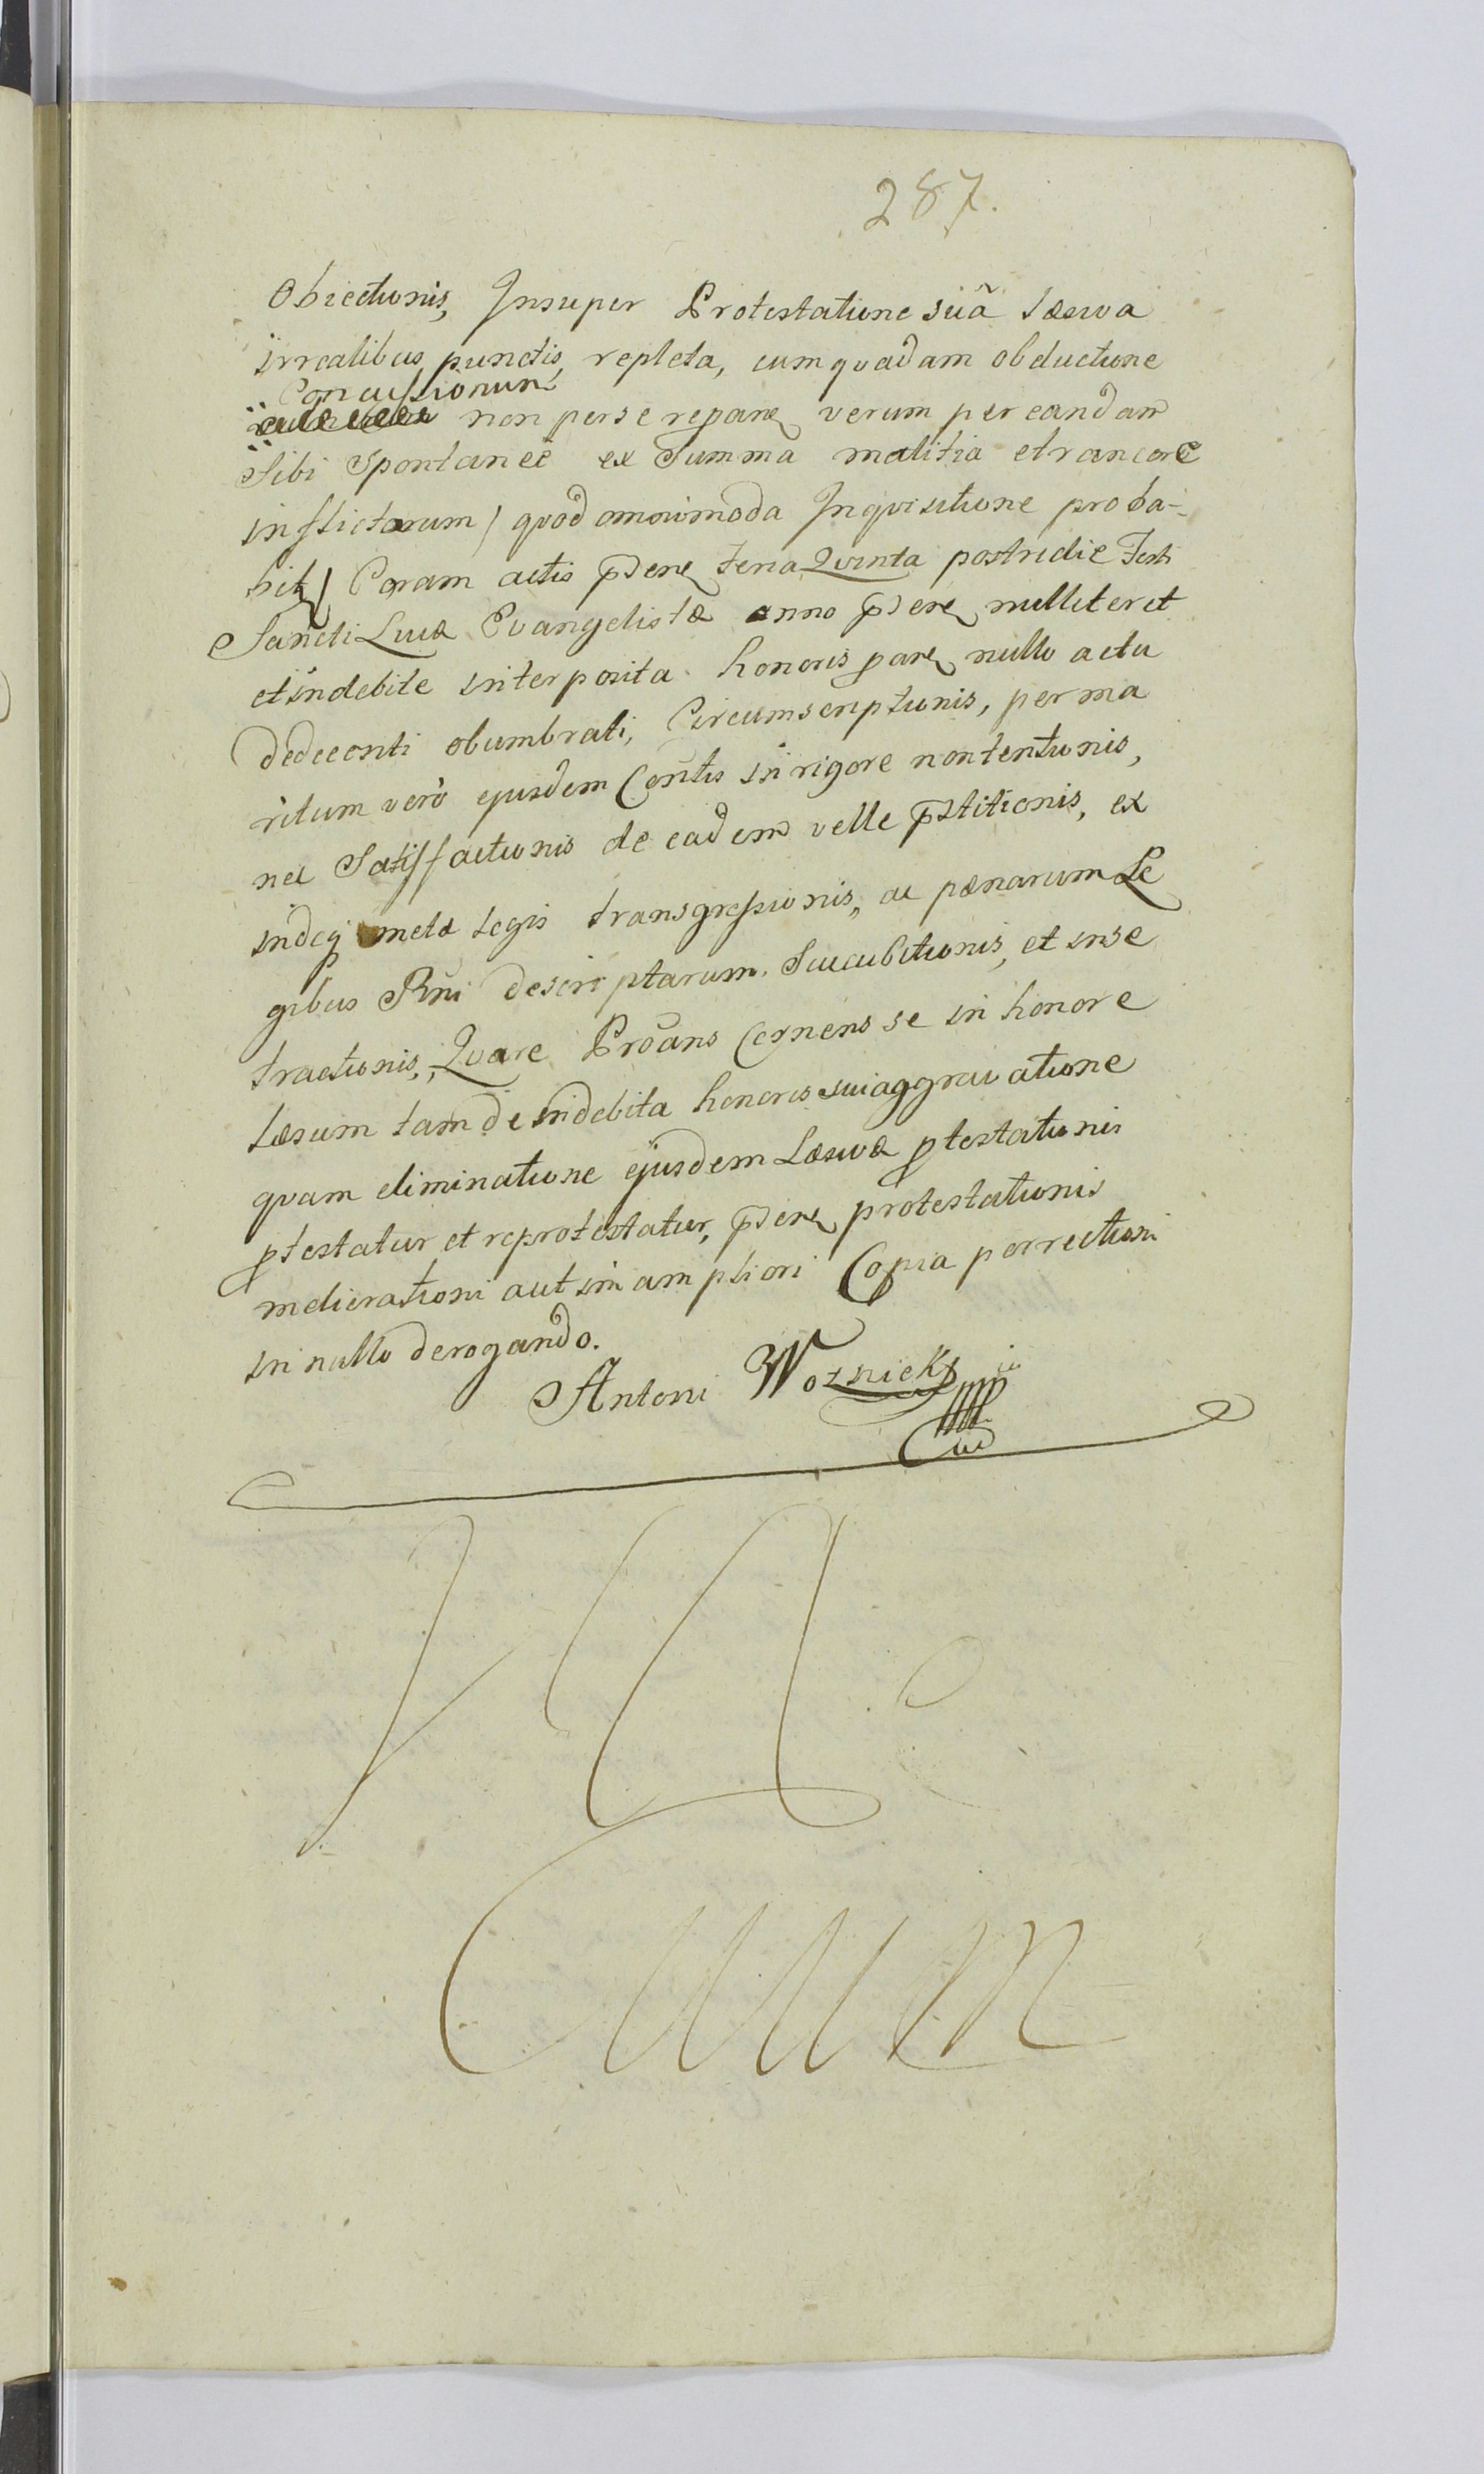 287.
Obiectionis, Insuper Protestatione suã Læsiva
irrealibus punctis repleta, cum quadam obductione
Concussionum
non per se repare verum per eandam
Sibi Spontaneè ex Summa malitia et rancore
inflictarum / quod omnimoda Inquisitione proba-
bit / Coram actis p̄dere feria Quinta postridie Festi
Sancti Lucæ Evangelistæ anno p̄dere nulliter et
et indebite interposita honoris pare nullo actu
dedecenti obumbrati, Circumscriptionis, per ma
ritum verò ejusdem Cōntis in rigore non tentionis,
nec Satisfactionis de eadem velle p̄stitionis, ex
indeq metæ legis transgressionis, ac pœnarum Le
gibus Rñi descriptarum Succubitionis, et in se
tractionis, Quare Prōans Cernens se in honore
læsum tam de indebita honoris sui aggravatione
quam eliminatione ejusdem Læsivæ ptestationis
ptestatur et reprotestatur, p̄dere protestationis
melierationi aut in ampliori Copia porrectioni
in nullo derogando.
Antoni Woźnicki